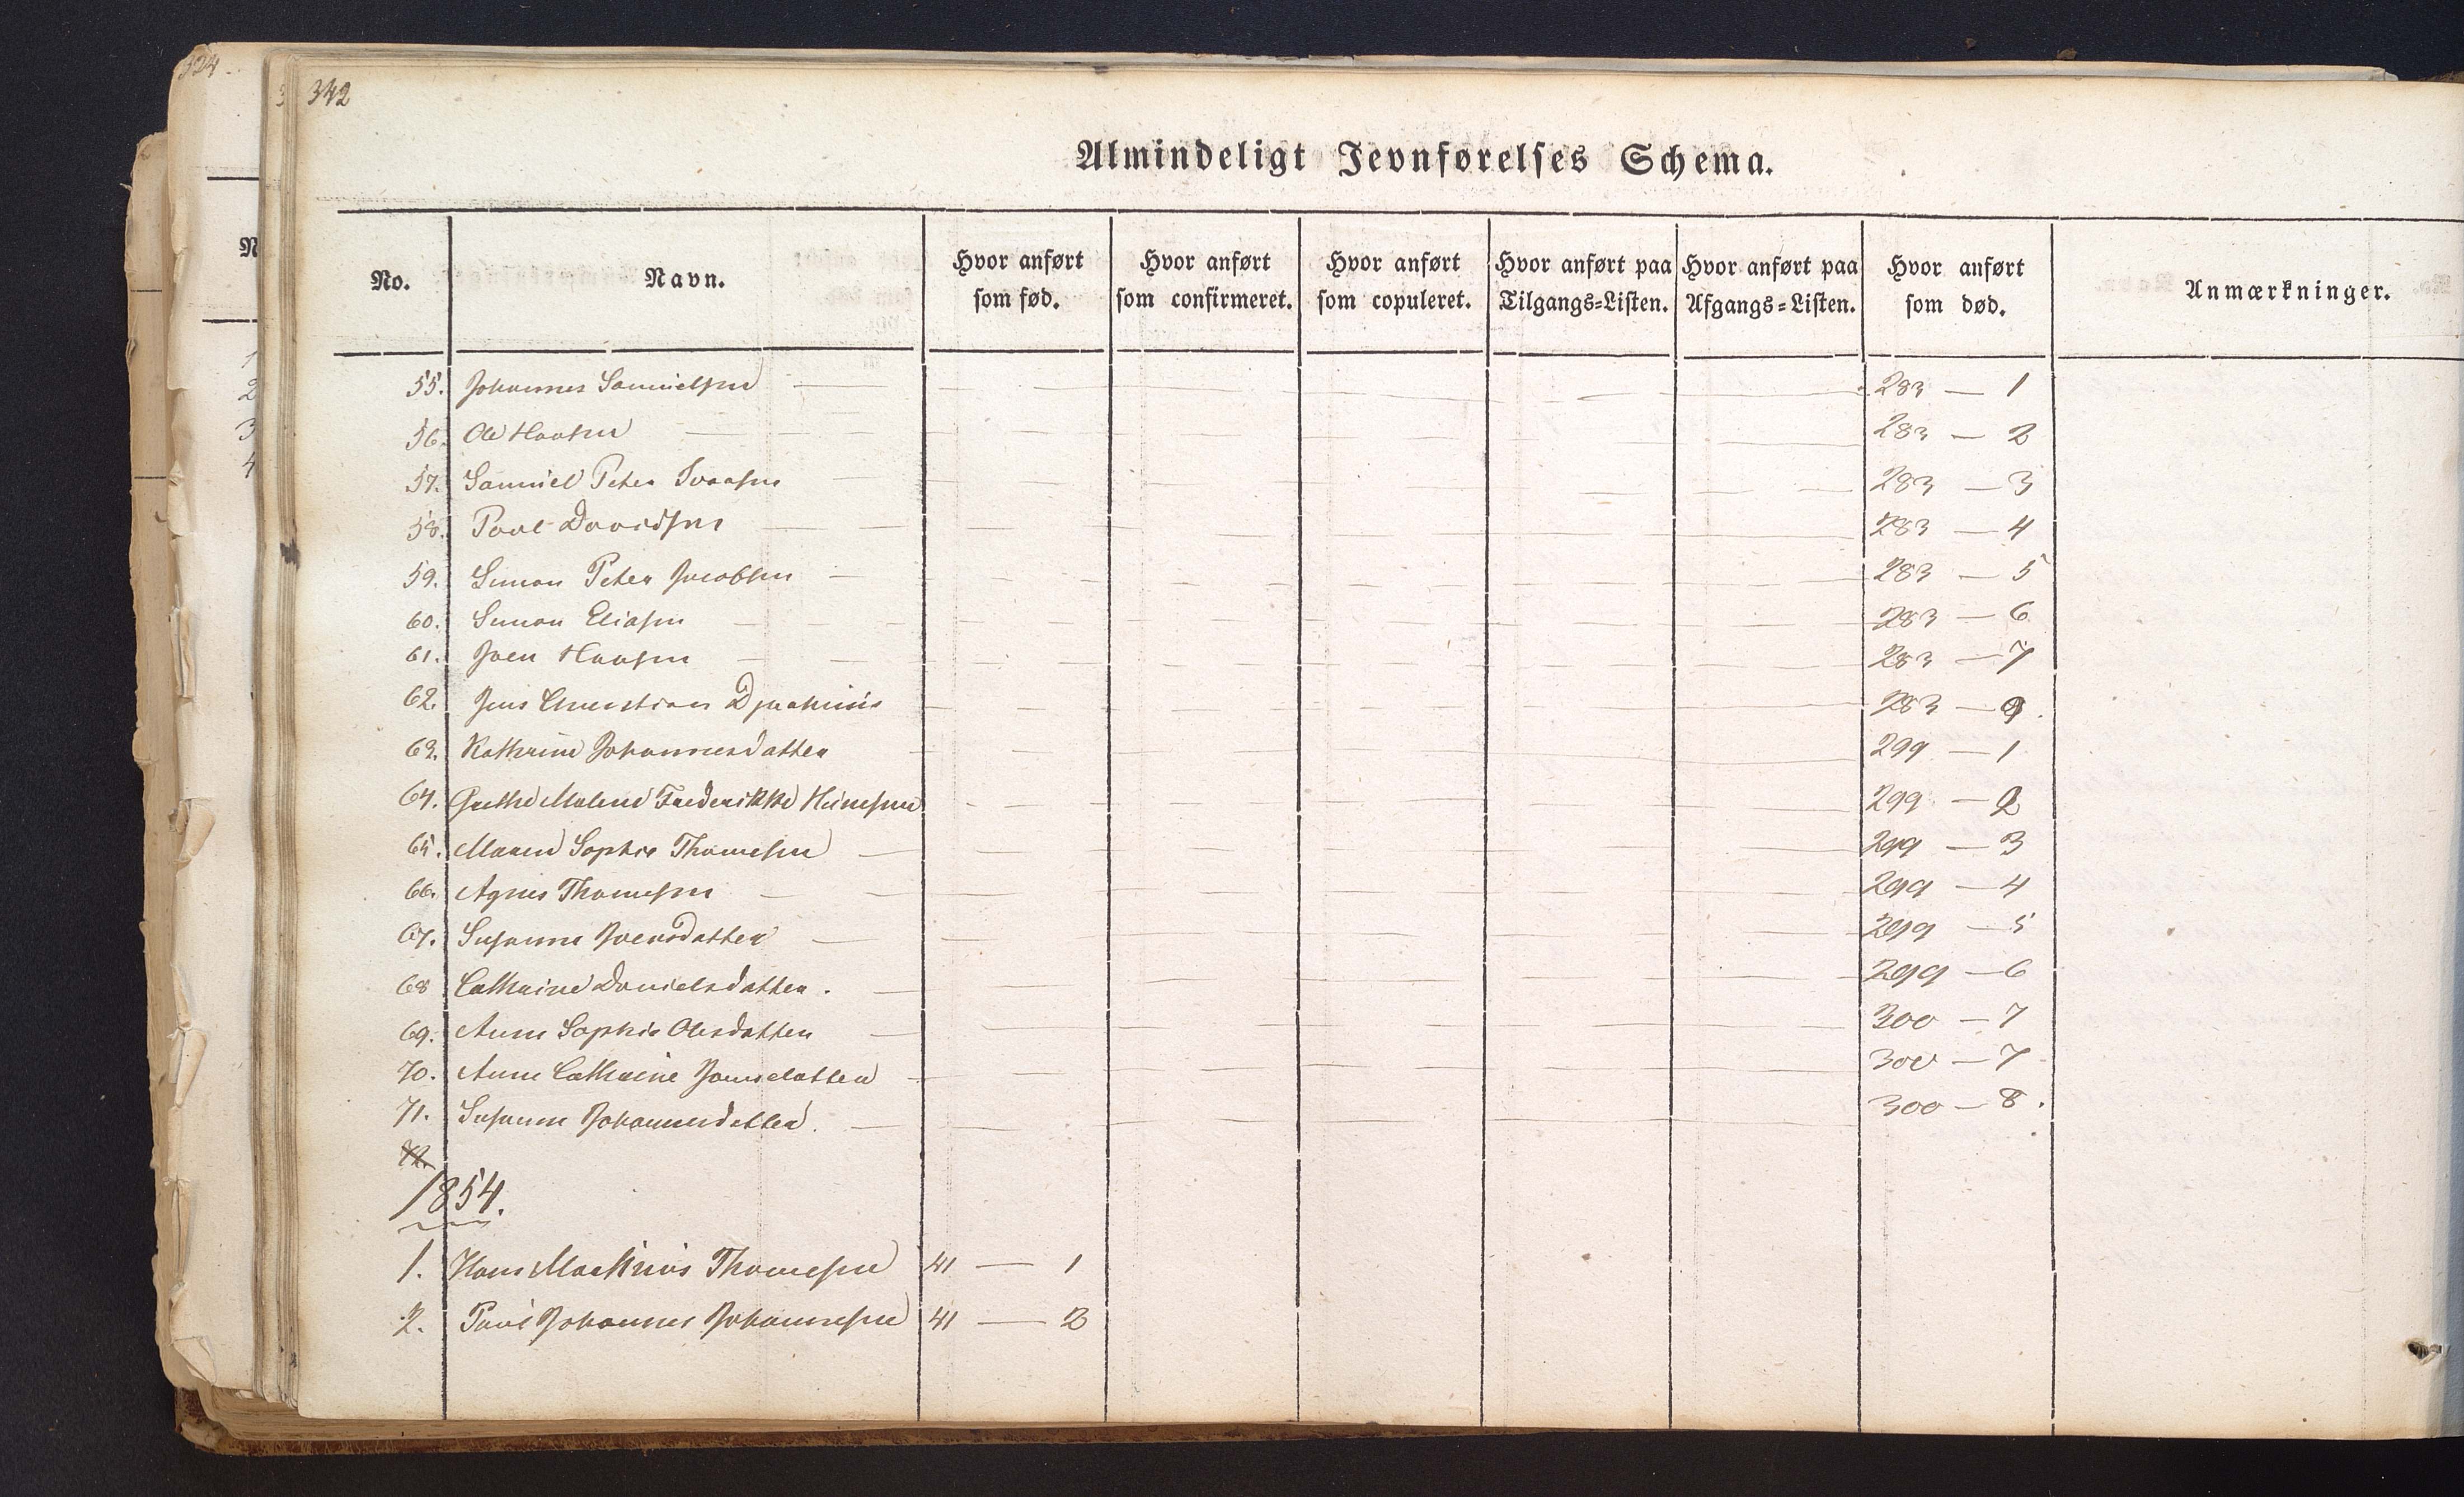 324
342
Almindeligt Jevnførelses Schema.
No. Navn. Hvor anført som fød. Hvor anført som confirmeret. Hvor anført som copuleret. Hvor anført paa Tilgangs=Listen. Hvor anført paa Afgangs=Listen. Hvor anført som død. Anmærkninger.
55. Johannes Samuelsen 283 — 1
56. Ole Hansen 283 — 2
57. Samuel Peter 283 — 3
58. Poul Davidsen 283 — 4
59. Simon Peter Jacobsen 283 — 5
60. Simon Eliasen 283 — 6
61. Joen Hansen 283 — 7
62. Jens Christian Djurhuus 283 —
63. Kathrine Johannesdatter 299 — 1
64. Grethe Malene Frederikke Heinesen 299 — 2
65. Maren Sophie Thomesen 299 — 3
66. Agnes Thomesen 299 — 4
67. Susanne Joensdatter 299 — 5
68 Cathrine Danielsdatter. 299 — 6
69. Anne Sophie Olesdatter 300 — 7
70. Anne Cathrine Joensdatter 300 — 7
71. Susanne Johannesdatter. 300 — 8.
72.
1854.
1. Hans Mathias Thomesen 41 — 1
2. Poul Johannes Johannesen 41 — 2